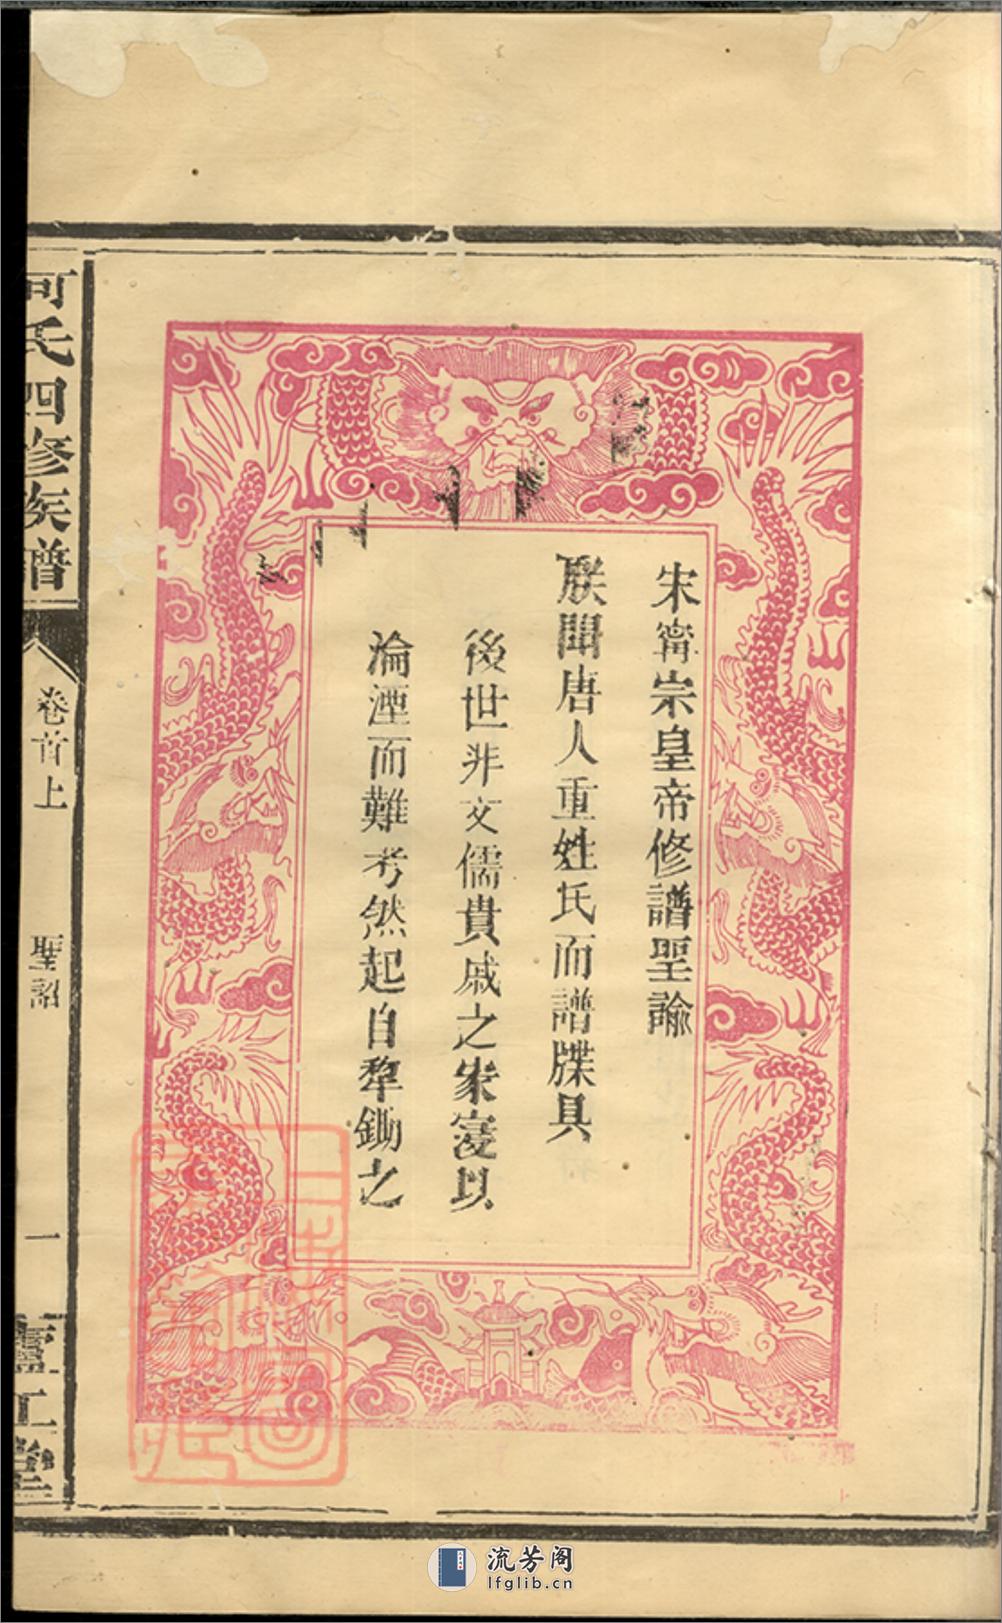 宋甯宗皇帝修譜聖諭
朕聞唐人重姓氏而譜牒具
後世非文儒貴戚之家寖以
淪湮而難考然起自犂鋤之
何氏四修族譜
卷首上
聖詔
一
流芳阁
lfglib.cn